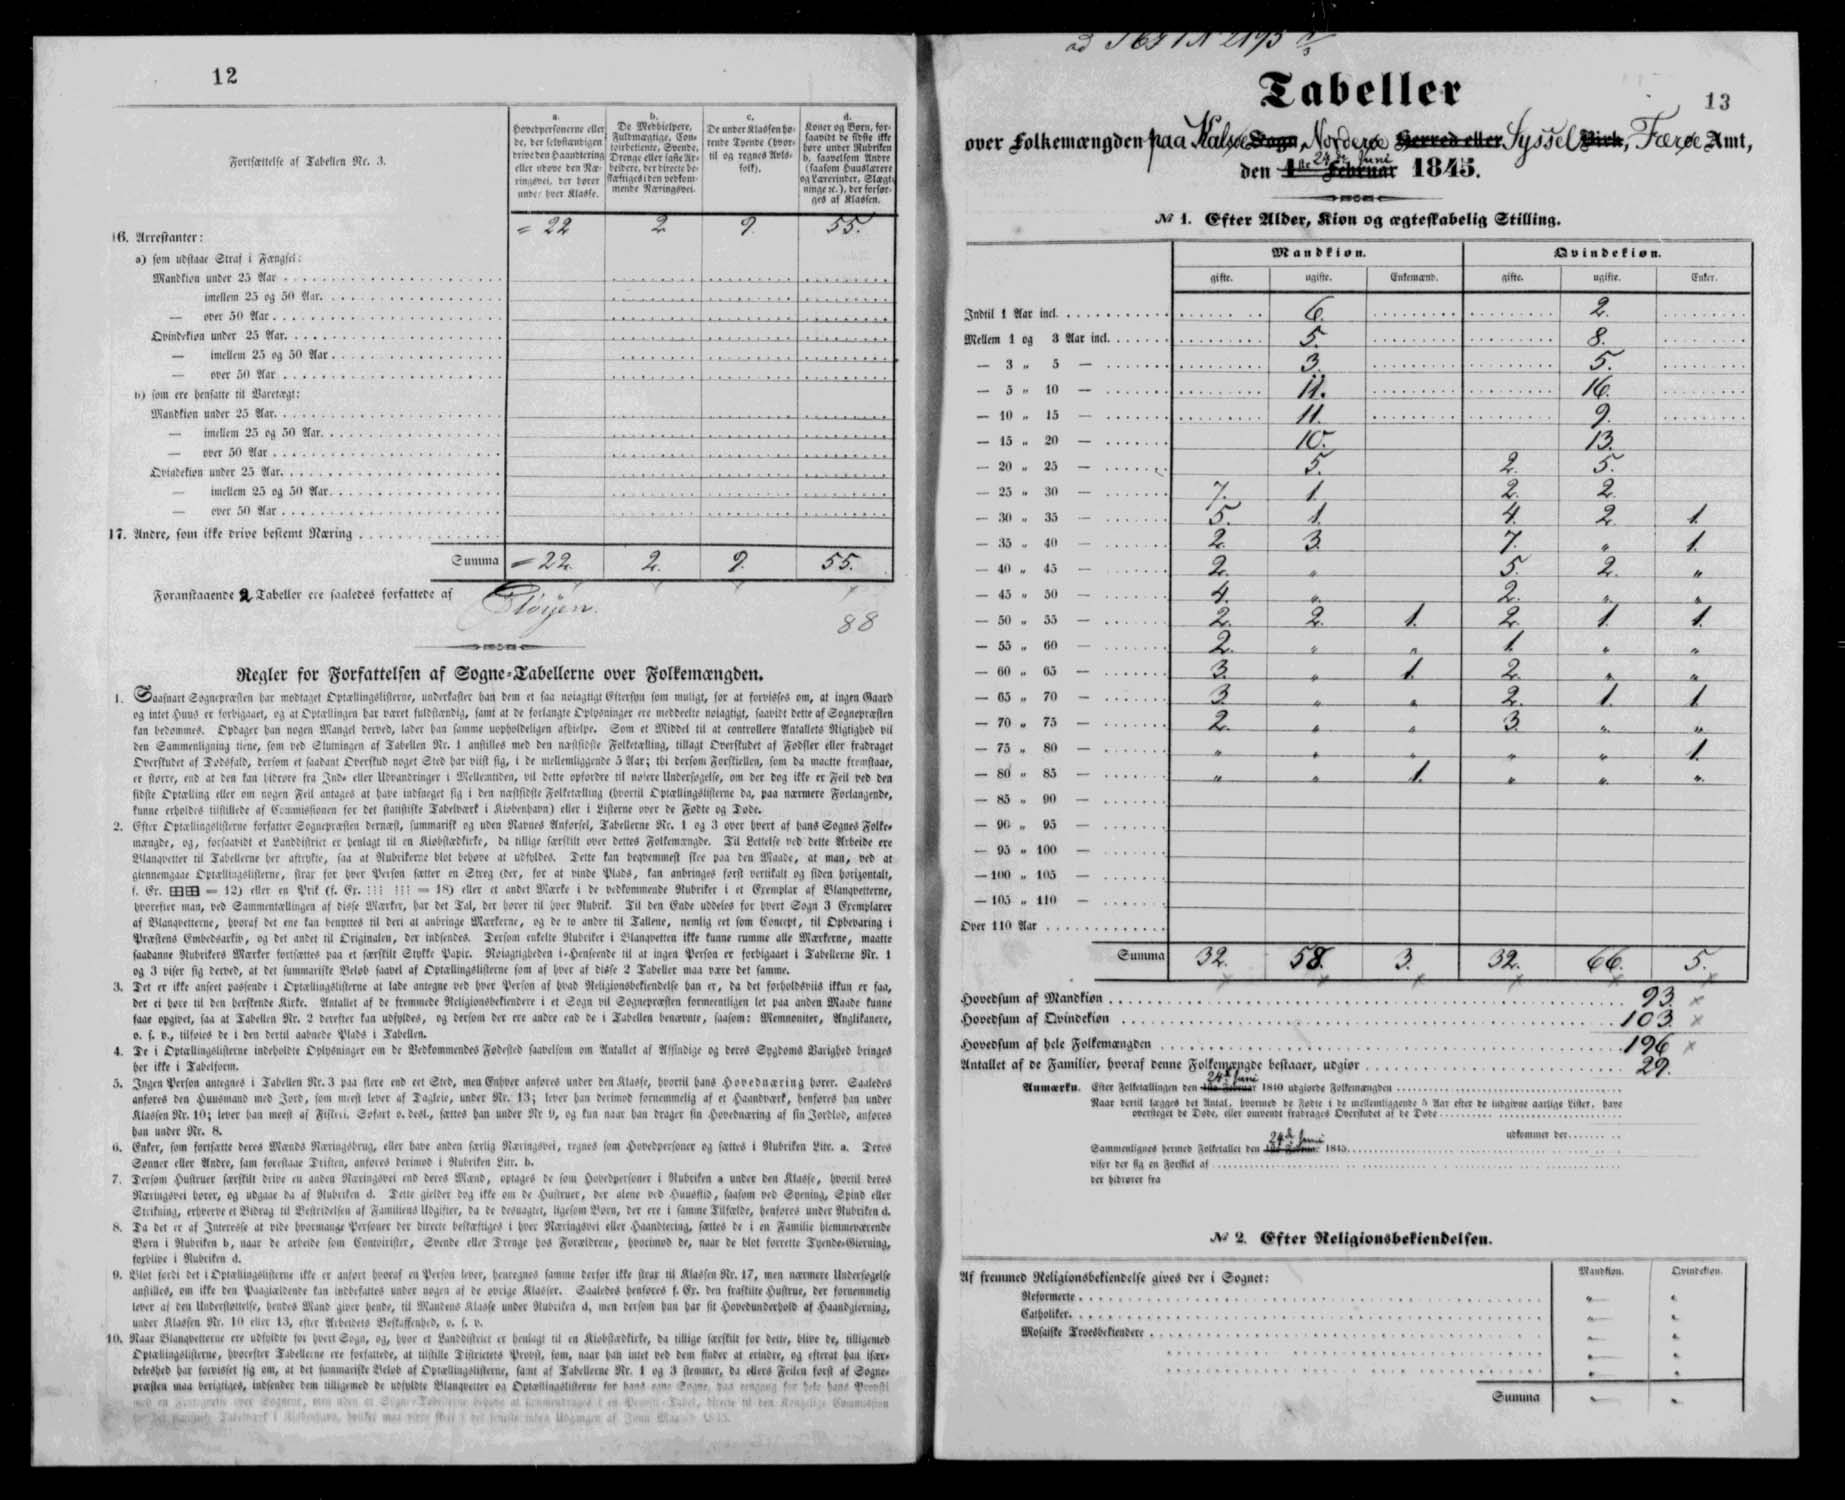 12
Fortsættelse af Tabellen Nr. 3.
a. Hovedpersonerne eller de, der selvstændigen drive den Haandtering eller udøve den Næringsvei, der hører under hver Klasse.
b. De Medhielpere, Fuldmægtige, Contoirbetiente, Svende, Drenge eller faste Arbeidere, der directe beskæftiges i den vedkommende Næringsvei.
c. De under Klassen hørende Tyende (hvortil og regnes Avlsfolk).
d. Koner og Børn, forsaavidt de sidste ikke høre under Rubriken b, saavelsom Andre (saasom Huuslærere og Lærerinder, Slægtninge ꝛc.), der forsørges af Klassen.
= 22 2. 9. 55.
16. Arrestanter:
a) som udstaae Straf i Fængsel:
Mandkiøn under 25 Aar
imellem 25 og 50 Aar.
— over 50 Aar
Qvindekiøn under 25 Aar.
— imellem 25 og 50 Aar
— over 50 Aar
b) som ere hensatte til Varetægt:
Mandkiøn under 25 Aar.
— imellem 25 og 50 Aar.
— over 50 Aar
Qvindekiøn under 25 Aar.
— imellem 25 og 50 Aar.
— over 50 Aar
17. Andre, som ikke drive bestemt Næring
Summa = 22. 2. 9. 55.
Foranstaaende 2 Tabeller ere saaledes forfattede af Pløyen.
88
Regler for Forfattelsen af Sogne-Tabellerne over Folkemængden.
1. Saasnart Sognepræsten har modtaget Optællingslisterne, underkaster han dem et saa nøiagtigt Eftersyn som muligt, for at forvisses om, at ingen Gaard
og intet Huus er forbigaaet, og at Optællingen har været fuldstændig, samt at de forlangte Oplysninger ere meddeelte nøiagtigt, saavidt dette af Sognepræsten
kan bedømmes. Opdager han nogen Mangel derved, lader han samme uopholdeligen afhielpe. Som et Middel til at controllere Antallets Rigtighed vil
den Sammenligning tiene, som ved Slutningen af Tabellen Nr. 1 anstilles med den næstsidste Folketælling, tillagt Overskudet af Fødsler eller fradraget
Overskudet af Dødsfald, dersom et saadant Overskud noget Sted har viist sig, i de mellemliggende 5 Aar; thi dersom Forskiellen, som da maatte fremstaae,
er større, end at den kan hidrøre fra Ind- eller Udvandringer i Mellemtiden, vil dette opfordre til nøiere Undersøgelse, om der dog ikke er Feil ved den
sidste Optælling eller om nogen Feil antages at have indsneget sig i den næstsidste Folketælling (hvortil Optællingslisterne da, paa nærmere Forlangende,
kunne erholdes tilstillede af Commissionen for det statistiske Tabelværk i Kiøbenhavn) eller i Listerne over de Fødte og Døde.
2. Efter Optællingslisterne forfatter Sognepræsten dernæst, summarisk og uden Navnes Anførsel, Tabellerne Nr. 1 og 3 over hvert af hans Sognes Folke-
mængde, og, forsaavidt et Landdistrict er henlagt til en Kiøbstædkirke, da tillige særskilt over dettes Folkemængde. Til Lettelse ved dette Arbeide ere
Blanqvetter til Tabellerne her aftrykte, saa at Rubrikerne blot behøve at udfyldes. Dette kan beqvemmest skee paa den Maade, at man, ved at
giennemgaae Optællingslisterne, strax for hver Person sætter en Streg (der, for at vinde Plads, kan anbringes først vertikalt og siden horizontalt,
f. Ex. = 12) eller en Prik (f. Ex. ⁝⁝⁝ ⁝⁝⁝ = 18) eller et andet Mærke i de vedkommende Rubriker i et Exemplar af Blanqvetterne,
hvorefter man, ved Sammentællingen af disse Mærker, har det Tal, der hører til hver Rubrik. Til den Ende uddeles for hvert Sogn 3 Exemplarer
af Blanqvetterne, hvoraf det ene kan benyttes til deri at anbringe Mærkerne, og de to andre til Tallene, nemlig eet som Concept, til Opbevaring i
Præstens Embedsarkiv, og det andet til Originalen, der indsendes. Dersom enkelte Rubriker i Blanqvetten ikke kunne rumme alle Mærkerne, maatte
saadanne Rubrikers Mærker fortsættes paa et særskilt Stykke Papir. Nøiagtigheden i Henseende til at ingen Person er forbigaaet i Tabellerne Nr. 1
og 3 viser sig derved, at det summariske Beløb saavel af Optællingslisterne som af hver af disse 2 Tabeller maa være det samme.
3. Det er ikke anseet passende i Optællingslisterne at lade antegne ved hver Person af hvad Religionsbekiendelse han er, da det forholdsviis ikkun er faa,
der ei høre til den herskende Kirke. Antallet af de fremmede Religionsbekiendere i et Sogn vil Sognepræsten formeentligen let paa anden Maade kunne
faae opgivet, saa at Tabellen Nr. 2 derefter kan udfyldes, og dersom der ere andre end de i Tabellen benævnte, saasom: Memnoniter, Anglikanere,
o. s. v., tilføies de i den dertil aabnede Plads i Tabellen.
4. De i Optællingslisterne indeholdte Oplysninger om de Vedkommendes Fødested saavelsom om Antallet af Afsindige og deres Sygdoms Varighed bringes
her ikke i Tabelform.
5. Ingen Person antegnes i Tabellen Nr. 3 paa flere end eet Sted, men Enhver anføres under den Klasse, hvortil hans Hovednæring hører. Saaledes
anføres den Huusmand med Jord, som meest lever af Dagleie, under Nr. 13; lever han derimod fornemmelig af et Haandværk, henføres han under
Klassen Nr. 10; lever han meest af Fiskeri, Søfart o. desl., sættes han under Nr 9, og kun naar han drager sin Hovednæring af sin Jordlod, anføres
han under Nr. 8.
6. Enker, som fortsætte deres Mænds Næringsbrug, eller have anden særlig Næringsvei, regnes som Hovedpersoner og sættes i Rubriken Litr. a. Deres
Sønner eller Andre, som forestaae Driften, anføres derimod i Rubriken Litr. b.
7. Dersom Hustruer særskilt drive en anden Næringsvei end deres Mænd, optages de som Hovedpersoner i Rubriken a under den Klasse, hvortil deres
Næringsvei hører, og udgaae da af Rubriken d. Dette gielder dog ikke om de Hustruer, der alene ved Huusflid, saasom ved Syening, Spind eller
Strikning, erhverve et Bidrag til Bestridelsen af Familiens Udgifter, da de desuagtet, ligesom Børn, der ere i samme Tilfælde, henføres under Rubriken d.
8. Da det er af Interesse at vide hvormange Personer der directe beskæftiges i hver Næringsvei eller Haandtering, sættes de i en Familie hiemmeværende
Børn i Rubriken b, naar de arbeide som Contoirister, Svende eller Drenge hos Forældrene, hvorimod de, naar de blot forrette Tyende-Gierning,
forblive i Rubriken d.
9. Blot fordi det i Optællingslisterne ikke er anført hvoraf en Person lever, henregnes samme derfor ikke strax til Klassen Nr. 17, men nærmere Undersøgelse
anstilles, om ikke den Paagiældende kan indbefattes under nogen af de øvrige Klasser. Saaledes henføres f. Ex. den fraskilte Hustrue, der fornemmelig
lever af den Understøttelse, hendes Mand giver hende, til Mandens Klasse under Rubriken d, men dersom hun har sit Hovedunderhold af Haandgierning,
under Klassen Nr. 10 eller 13, efter Arbeidets Beskaffenhed, o. s. v.
10. Naar Blanqvetterne ere udfyldte for hvert Sogn, og, hvor et Landdistrict er henlagt til en Kiøbstædkirke, da tillige særskilt for dette, blive de, tilligemed
Optællingslisterne, hvorefter Tabellerne ere forfattede, at tilstille Districtets Provst, som, naar han intet ved dem finder at erindre, og efterat han især-
deleshed har forvisset sig om, at det summariske Beløb af Optællingslisterne, samt af Tabellerne Nr. 1 og 3 stemmer, da ellers Feilen først af Sogne-
præsten maa berigtiges, indsender dem tilligemed de udfyldte Blanqvetter og Optællingslisterne for hans egne Sogne, paa eengang for hele hans Provsti
13
Tabeller
over Folkemængden paa Kalsøe Sogn, Norderøe Herred eller Syssel Birk, Færøe Amt,
den 1ste Februar 24de Juni 1845.
№ 1. Efter Alder, Kiøn og ægteskabelig Stilling.
Mandkiøn. Qvindekiøn.
gifte. ugifte. Enkemænd. gifte. ugifte. Enker.
Indtil 1 Aar incl. 6. 2.
Mellem 1 og 3 Aar incl. 5. 8.
— 3 „ 5 — 3. 5.
— 5 „ 10 — 11. 16.
— 10 „ 15 — 11. 9.
— 15 „ 20 — 10. 13.
— 20 „ 25 — 5. 2. 5.
— 25 „ 30 — 7. 1. 2. 2.
— 30 „ 35 — 5. 1. 4. 2. 1.
— 35 „ 40 — 2. 3. 7. „ 1.
— 40 „ 45 — 2. „ 5. 2. „
— 45 „ 50 — 4. „ 2. „ „
— 50 „ 55 — 2. 2. 1. 2. 1. 1.
— 55 „ 60 — 2. „ „ 1. „ „
— 60 „ 65 — 3. „ 1. 2. „ „
— 65 „ 70 — 3. „ „ 2. 1. 1
— 70 „ 75 — 2. „ „ 3. „ „
— 75 „ 80 — „ „ „ „ „ 1.
— 80 „ 85 — „ „ 1. „ „ „
— 85 „ 90 —
— 90 „ 95 —
— 95 „ 100 —
— 100 „ 105 —
— 105 „ 110 —
Over 110 Aar
Summa 32. 58. 3. 32. 66. 5.
Hovedsum af Mandkiøn 93.
Hovedsum af Qvindekiøn 103.
Hovedsum af hele Folkemængden 196
Antallet af de Familier, hvoraf denne Folkemængde bestaaer, udgiør 29.
Anmærkn. Efter Folketællingen den 1ste Februar 24de Juni 1840 udgiorde Folkemængden
Naar dertil lægges det Antal, hvormed de Fødte i de mellemliggende 5 Aar efter de indgivne aarlige Lister, have
oversteget de Døde, eller omvendt fradrages Overskudet af de Døde
udkommer der
Sammenlignes hermed Folketallet den 1ste Februar 24de Juni 1845
viser der sig en Forskiel af
der hidrører fra
№ 2. Efter Religionsbekiendelsen.
Mandkiøn. Qvindekiøn.
Af fremmed Religionsbekiendelse gives der i Sognet:
Reformerte „ „
Catholiker. „ „
Mosaiske Troesbekiendere „ „
Summa „ „